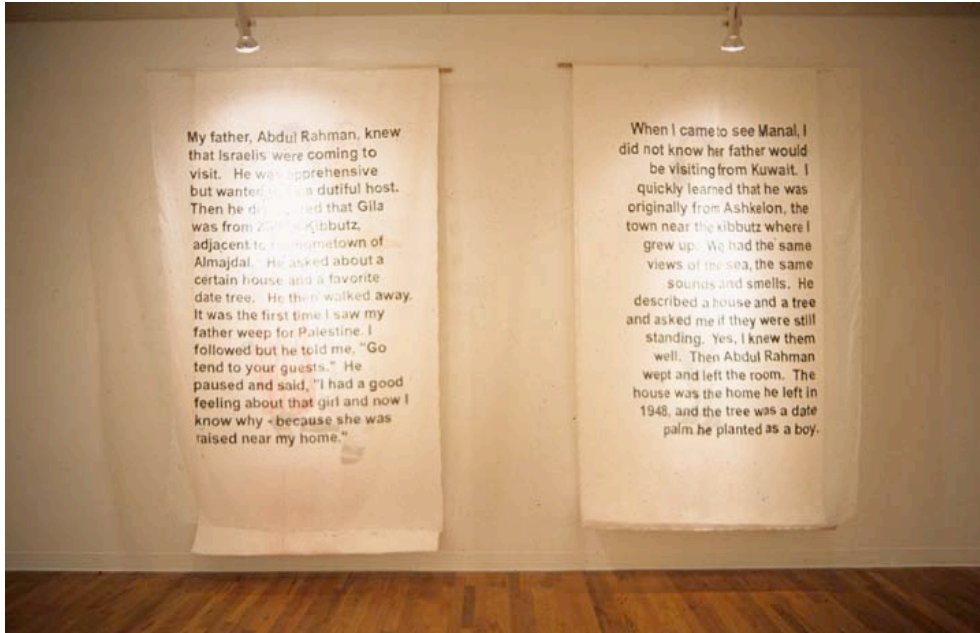 My father, Abdul Rahman, knew
that Israelis were coming to
visit. He was apprehensive
but wanted a dutiful host.
Then he that Gila
was from Kibbutz,
adjacent to hometown of
Almajdal. He asked about a
certain house and a favorite
date tree. He then walked away.
It was the first time I saw my
father weep for Palestine. I
followed but he told me, "Go
tend to your guests." He
paused and said, "I had a good
feeling about that girl and now I
know why - because she was
raised near my home."
When I came to see Manal, I
did not know her father would
be visiting from Kuwait. I
quickly learned that he was
originally from Ashkelon, the
town near the kibbutz where I
grew up. We had the same
views of the sea, the same
sounds and smells. He
described a house and a tree
and asked me if they were still
standing. Yes, I knew them
well. Then Abdul Rahman
wept and left the room. The
house was the home he left in
1948, and the tree was a date
palm he planted as a boy.